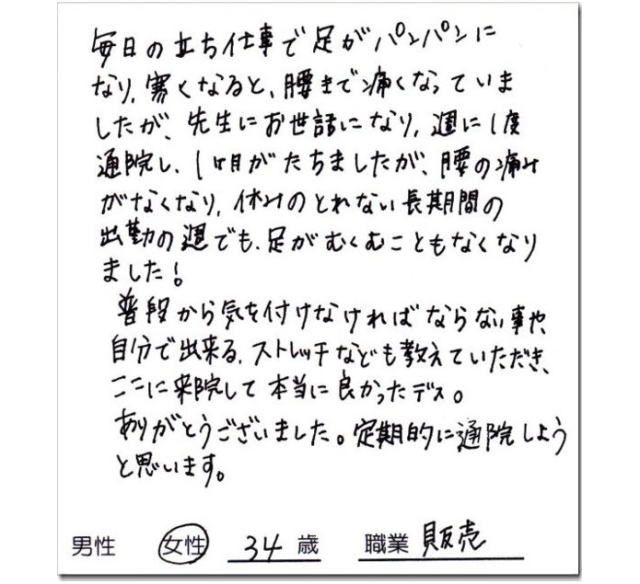 毎日の立ち仕事で足がパンパンに
なり、寒くなると、腰まで痛くなっていま
したが、先生にお世話になり、週に1度
通院し、1ヶ月がたちましたが、腰の痛み
がなくなり、休みのとれない長期間の
出勤の週でも、足がむくむこともなくなり
ました!
普段から気を付けなければならない事や
自分で出来る、ストレッチなども教えていただき、
ここに来院して本当に良かったデス。
ありがとうございました。定期的に通院しよう
と思います。
男性 女性 34歳 職業 販売